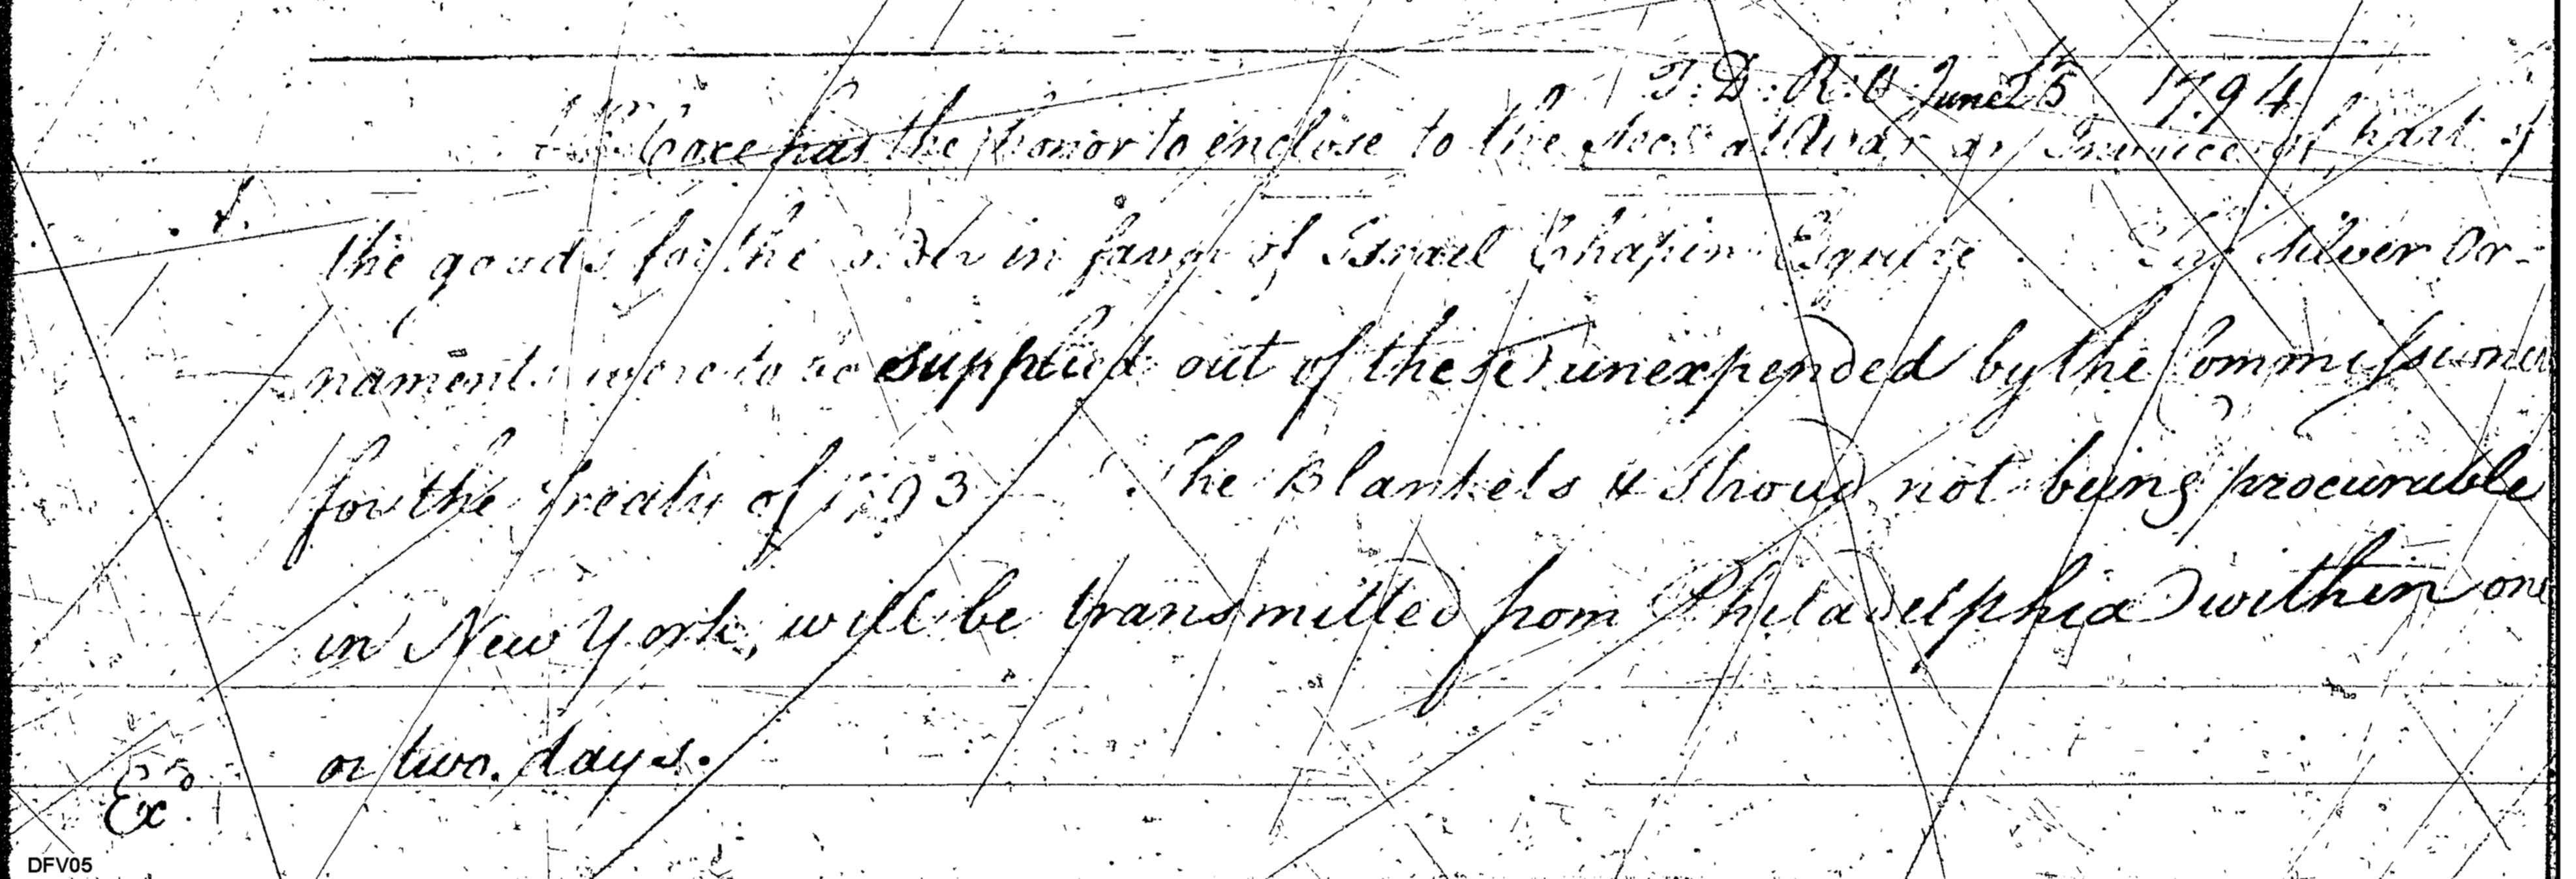 T: D: R: O June 25 1794
Mr Coxe has the honor to enclose to the Secy at War an Invoice of part of
the goods for the order in favor of Israel Chapin Esquire. The Silver Or-
naments were to be supplied out of these unexpended by the Commissioners
for the Treaty of 1793 The Blankets & Stroud not being procurable
in New York, will be transmitted from Philadelphia within one
or two days.
Exd
DFV05